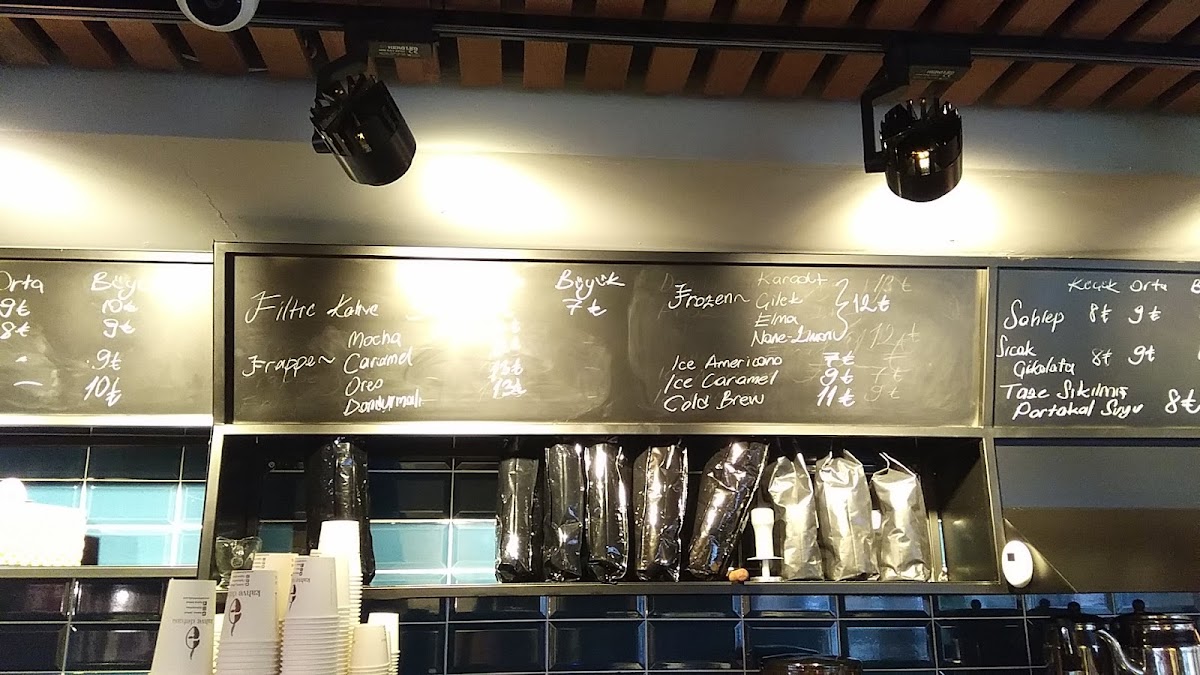 Orta Büyü
9₺ 10₺
8₺ 9₺
9₺
10₺
Büyük
Filtre Kahve 7₺
Mocha
Frappe Caramel
Oreo 13₺
Dondurmalı
Karadut
Frozen Çilek 12₺
Elma
Nane-Limon
Ice Americano 7₺
Ice Caramel 9₺
Cold Brew 11₺
Küçük Orta B
Sahlep 8₺ 9₺
Sıcak
Çikolata 8₺ 9₺
Taze Sıkılmış
Portakal Suyu 8₺